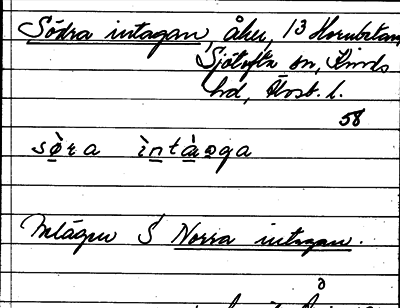 Södra intagan, åker, 13 Hornbetan,
Sjötofta sn, Kinds
hd, Älvsb. l.
58
sø̀ra ìntàga
Inlägor S Norra intagan.